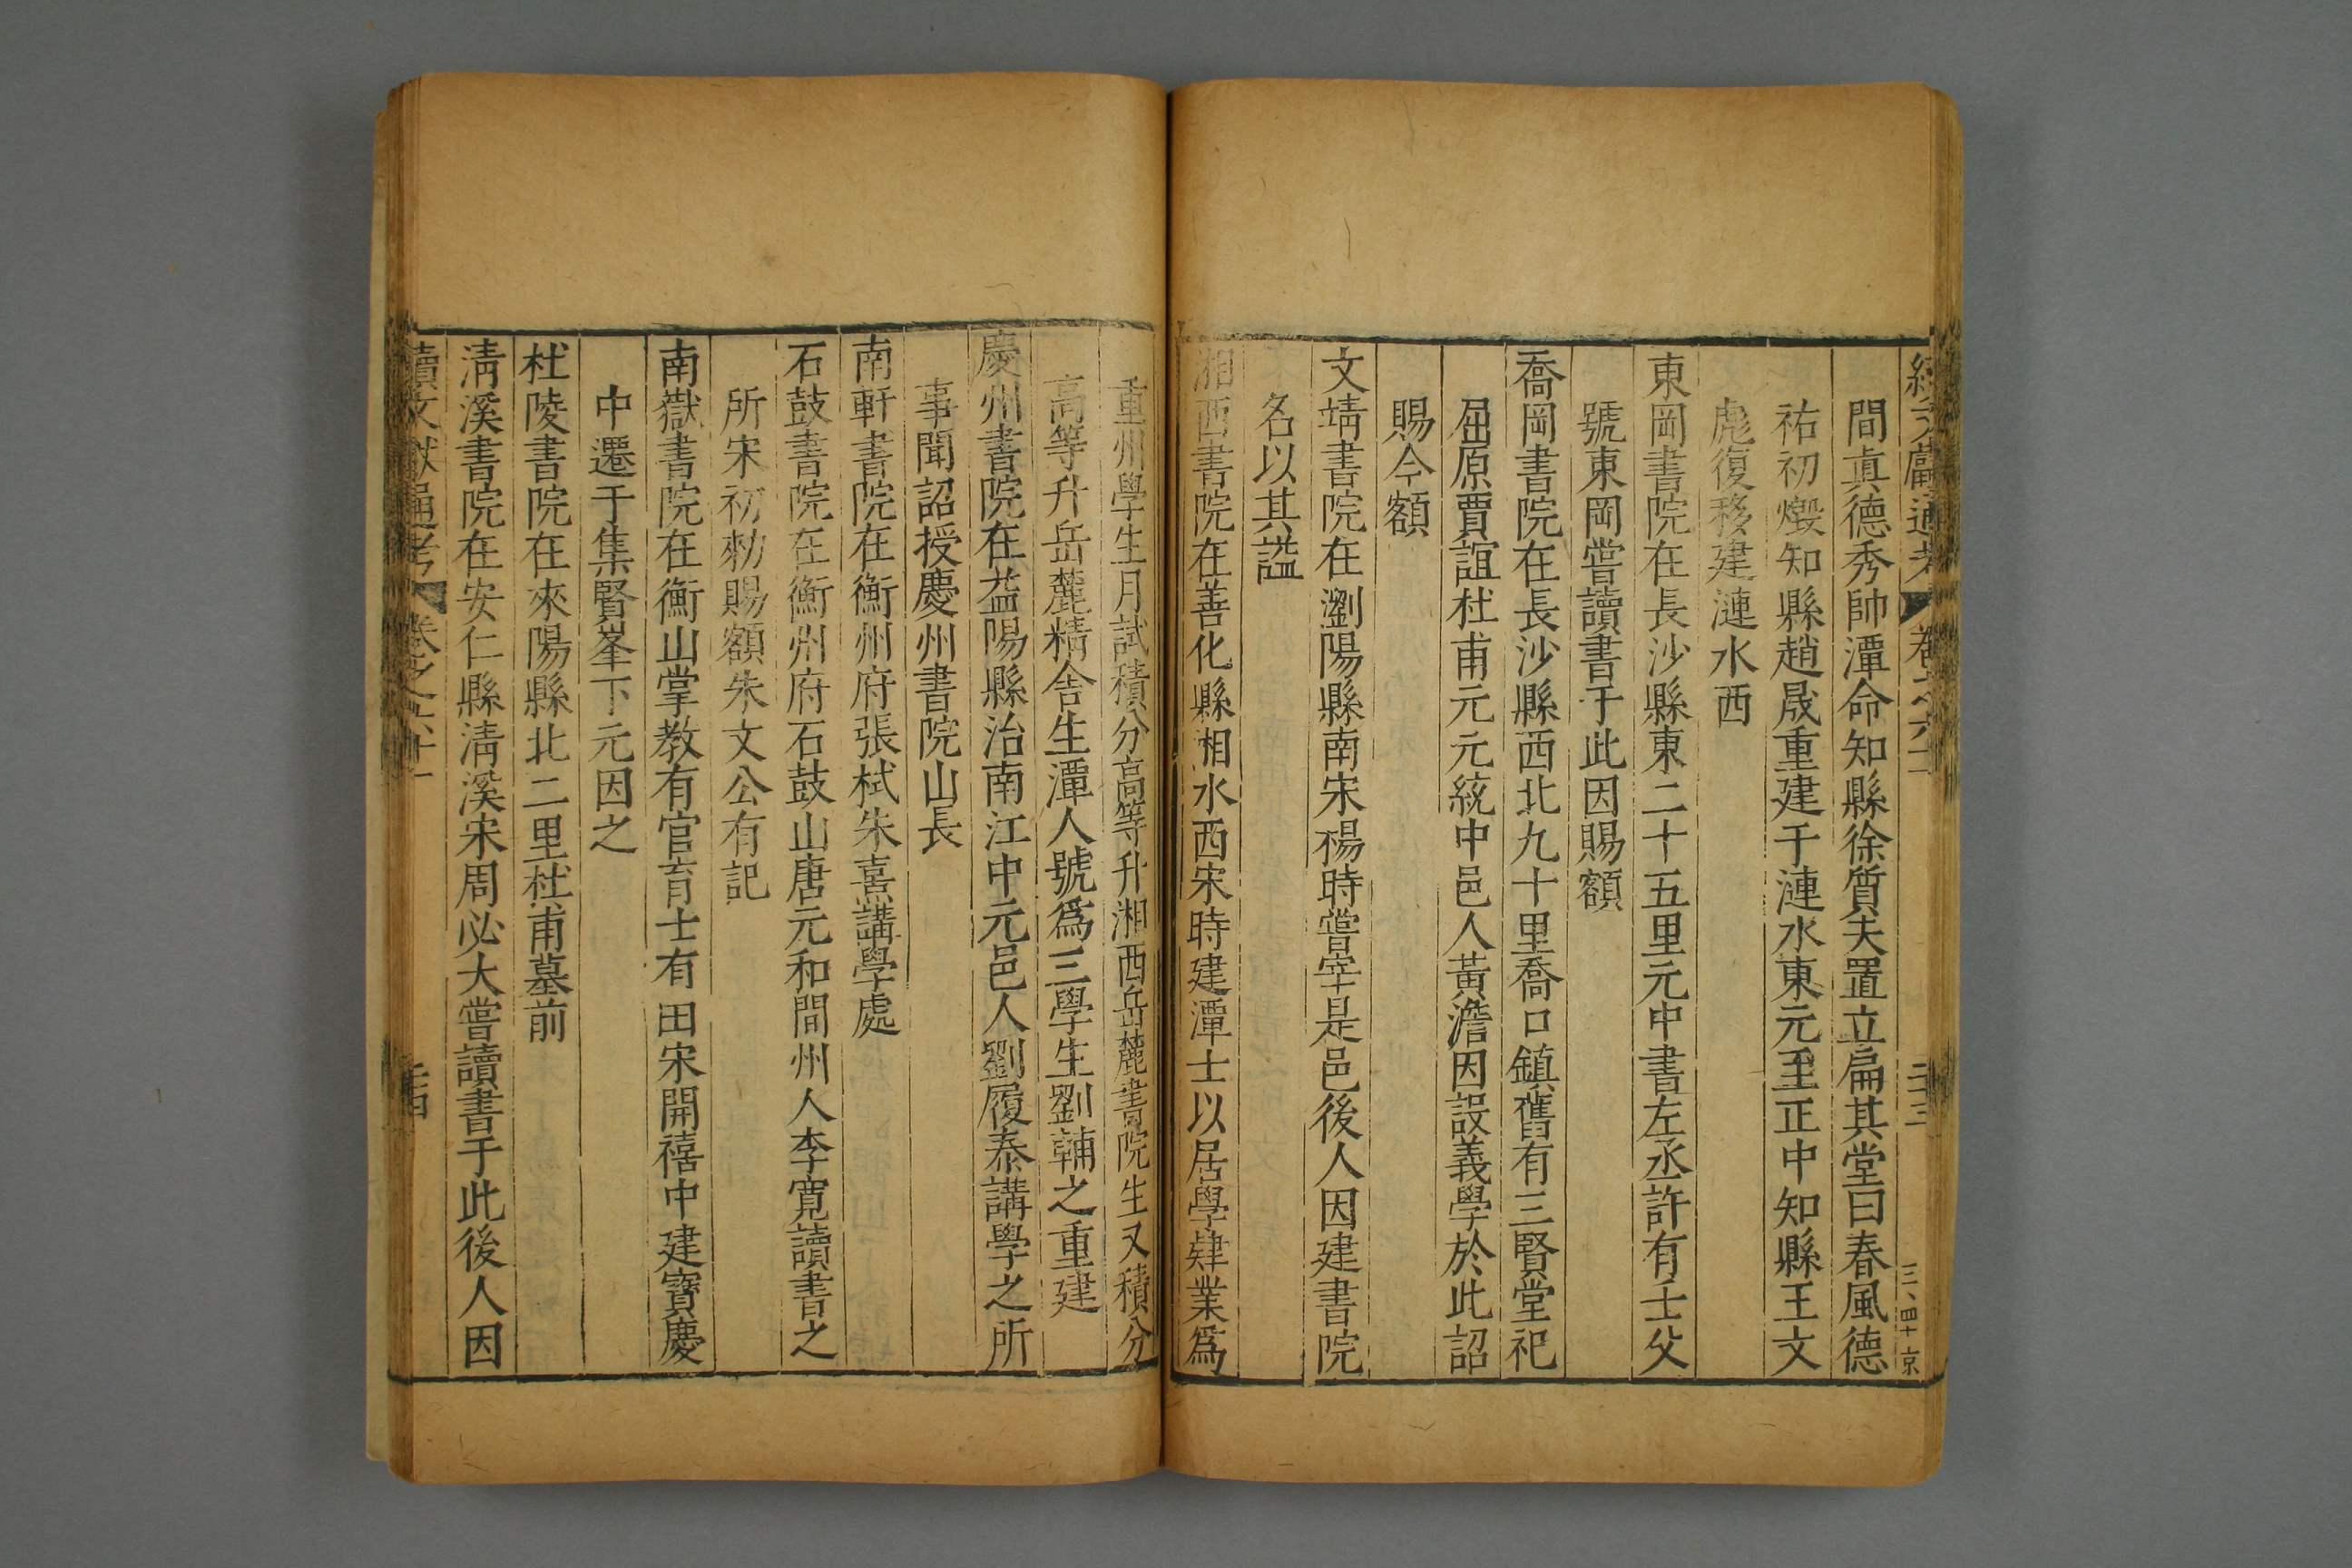 續文獻通考 卷之六十一 二十三 三、四十 京
間眞德秀帥潭命知縣徐質夫置立扁其堂曰春風德
祐初燬知縣趙晟重建于漣水東元至正中知縣王文
彪復移建漣水西
東岡書院在長沙縣東二十五里元中書左丞許有壬父
號東岡嘗讀書于此因賜額
喬岡書院在長沙縣西北九十里喬口鎮舊有三賢堂祀
屈原賈誼杜甫元元統中邑人黃澹因設義學於此詔
賜今額
文靖書院在瀏陽縣南宋楊時嘗宰是邑後人因建書院
名以其諡
湘西書院在善化縣湘水西宋時建潭士以居學肄業爲
重州學生月試積分高等升湘西岳麓書院生又積分
高等升岳麓精舍生潭人號爲三學生劉輔之重建
慶州書院在益陽縣治南江中元邑人劉履泰講學之所
事聞詔授慶州書院山長
南軒書院在衡州府張栻朱熹講學處
石鼓書院在衡州府石鼓山唐元和間州人李寬讀書之
所宋初勑賜額朱文公有記
南嶽書院在衡山掌教有官育士有田宋開禧中建寶慶
中遷于集賢峯下元因之
杜陵書院在來陽縣北二里杜甫墓前
清溪書院在安仁縣清溪宋周必大嘗讀書于此後人因
續文獻通考 卷之六十一 二十四